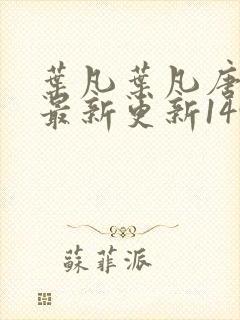 葉凡葉凡唐
最新更新14
蘇菲派